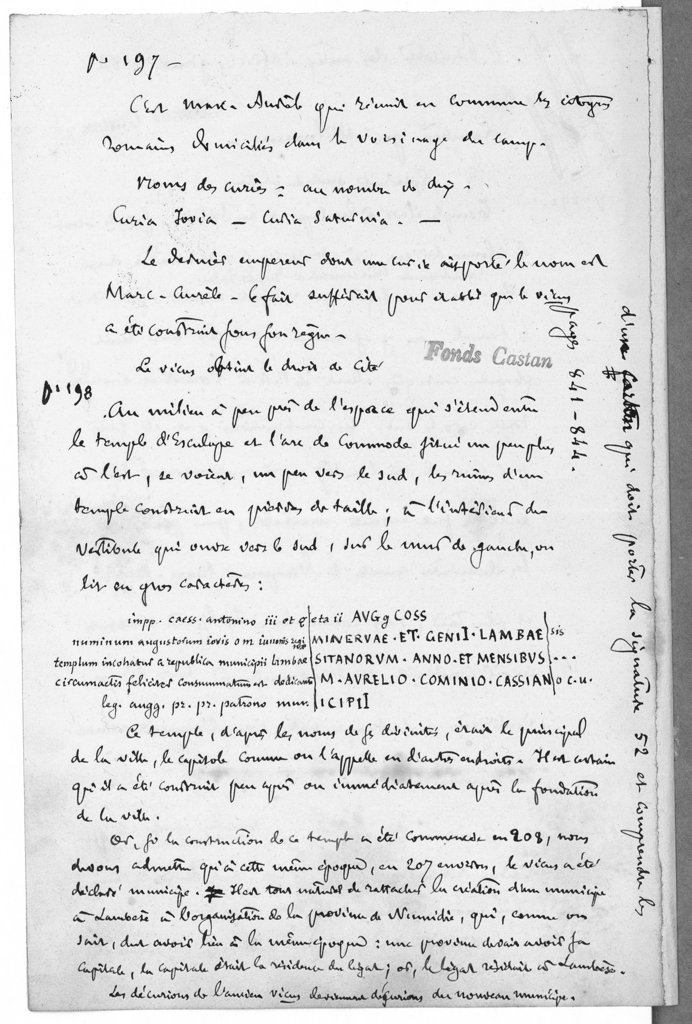 p. 197 -
C'est Marc-Aurèle qui réunit en commune les citoyens
romains domiciliés dans le voisinage du camp.
Noms des curies = au nombre de dix.
Curia Jovia — Curia Saturnia. —
Le dernier empereur dont une curie ait porté le nom est
Marc-Aurèle - le fait suffirait pour établir que le vicus
a été construit sous son règne -
Le vicus obtint le droit de cité
Fonds Castan
p. 198
. Au milieu à peu près de l'espace qui s'étend entre
le temple d'Esculape et l'arc de Commode situé un peu plus
à l'est, se voient, un peu vers le sud, les ruines d'un
temple construit en pierres de taille ; à l'intérieur du
vestibule qui ouvre vers le sud, sur le mur de gauche, on
lit en gros caractères :
impp. caess. antonino iii et geta ii AVGg COSS
numinum augustorum iovis o m iunonis regi MINERVAE · ET · GENII · LAMBAE sis
templum incohatum a republica municipii lambae SITANORVM · ANNO · ET MENSIBVS ...
circumactis feliciter consummatum est dedicante M · AVRELIO · COMINIO · CASSIANO c. u.
leg. augg. pr. pr. patrono mun. ICIPII
Ce temple, d'après les noms de ses divinités, était le principal
de la ville, le capitole comme on l'appelle en d'autres endroits. Il est certain
qu'il a été construit peu après ou immédiatement après la fondation
de la ville.
Or, si la construction de ce temple a été commencée en 208, nous
devons admettre qu'à cette même époque, en 207 environ, le vicus a été
déclaré municipe. Il est tout naturel de rattacher la création d'un municipe
à Lambèse à l'organisation de la province de Numidie, qui, comme on
sait, dut avoir lieu à la même époque : une province devait avoir sa
capitale, la capitale était la résidence du légat ; or, le légat résidait à Lambèse.
Les décurions de l'ancien vicus deviennent décurions du nouveau municipe.
d'une qui doit porter la signature 52 et comprendre les
pages 841-844.